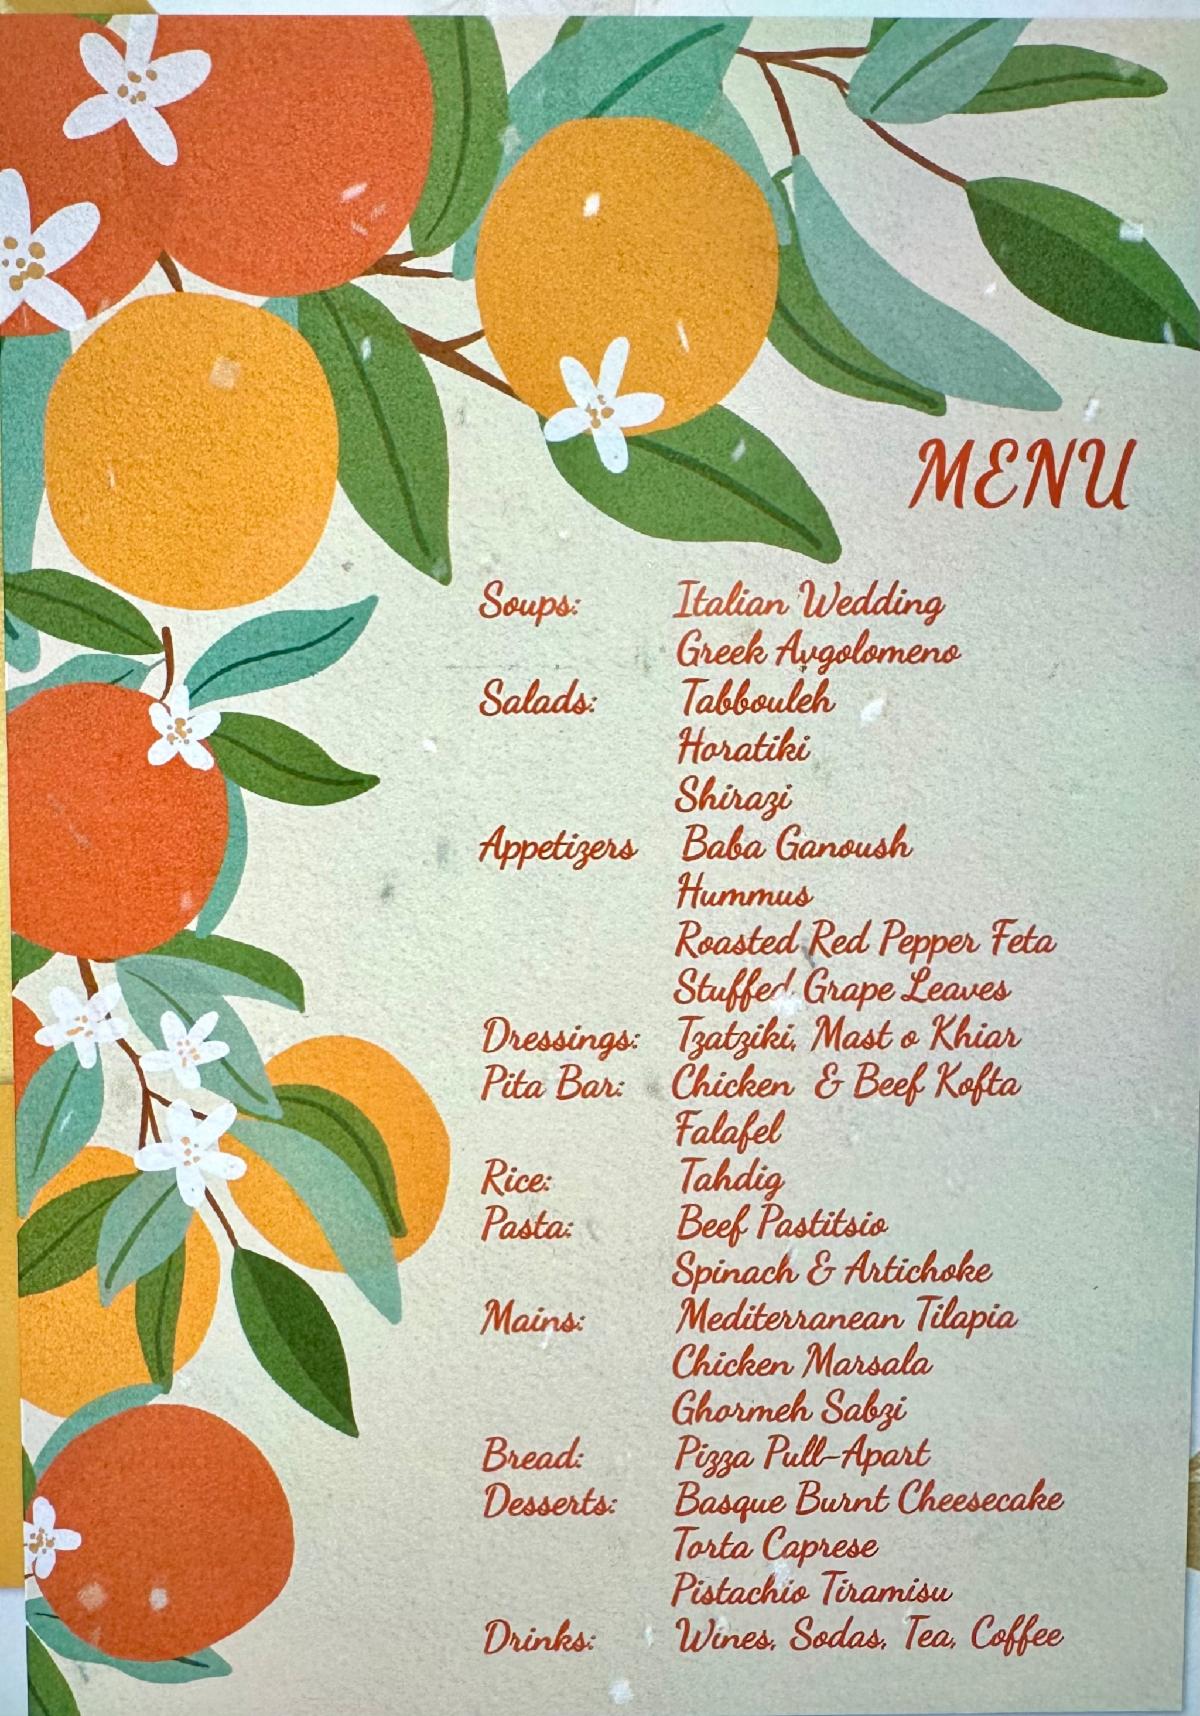 MENU
Soups: Italian Wedding
Greek Avgolomeno
Salads: Tabbouleh
Horatiki
Shirazi
Appetizers Baba Ganoush
Hummus
Roasted Red Pepper Feta
Stuffed Grape Leaves
Dressings: Tzatziki, Mast o Khiar
Pita Bar: Chicken & Beef Kofta
Falafel
Rice: Tahdig
Pasta: Beef Pastitsio
Spinach & Artichoke
Mains: Mediterranean Tilapia
Chicken Marsala
Ghormeh Sabzi
Bread: Pizza Pull-Apart
Desserts: Basque Burnt Cheesecake
Torta Caprese
Pistachio Tiramisu
Drinks: Wines, Sodas, Tea, Coffee